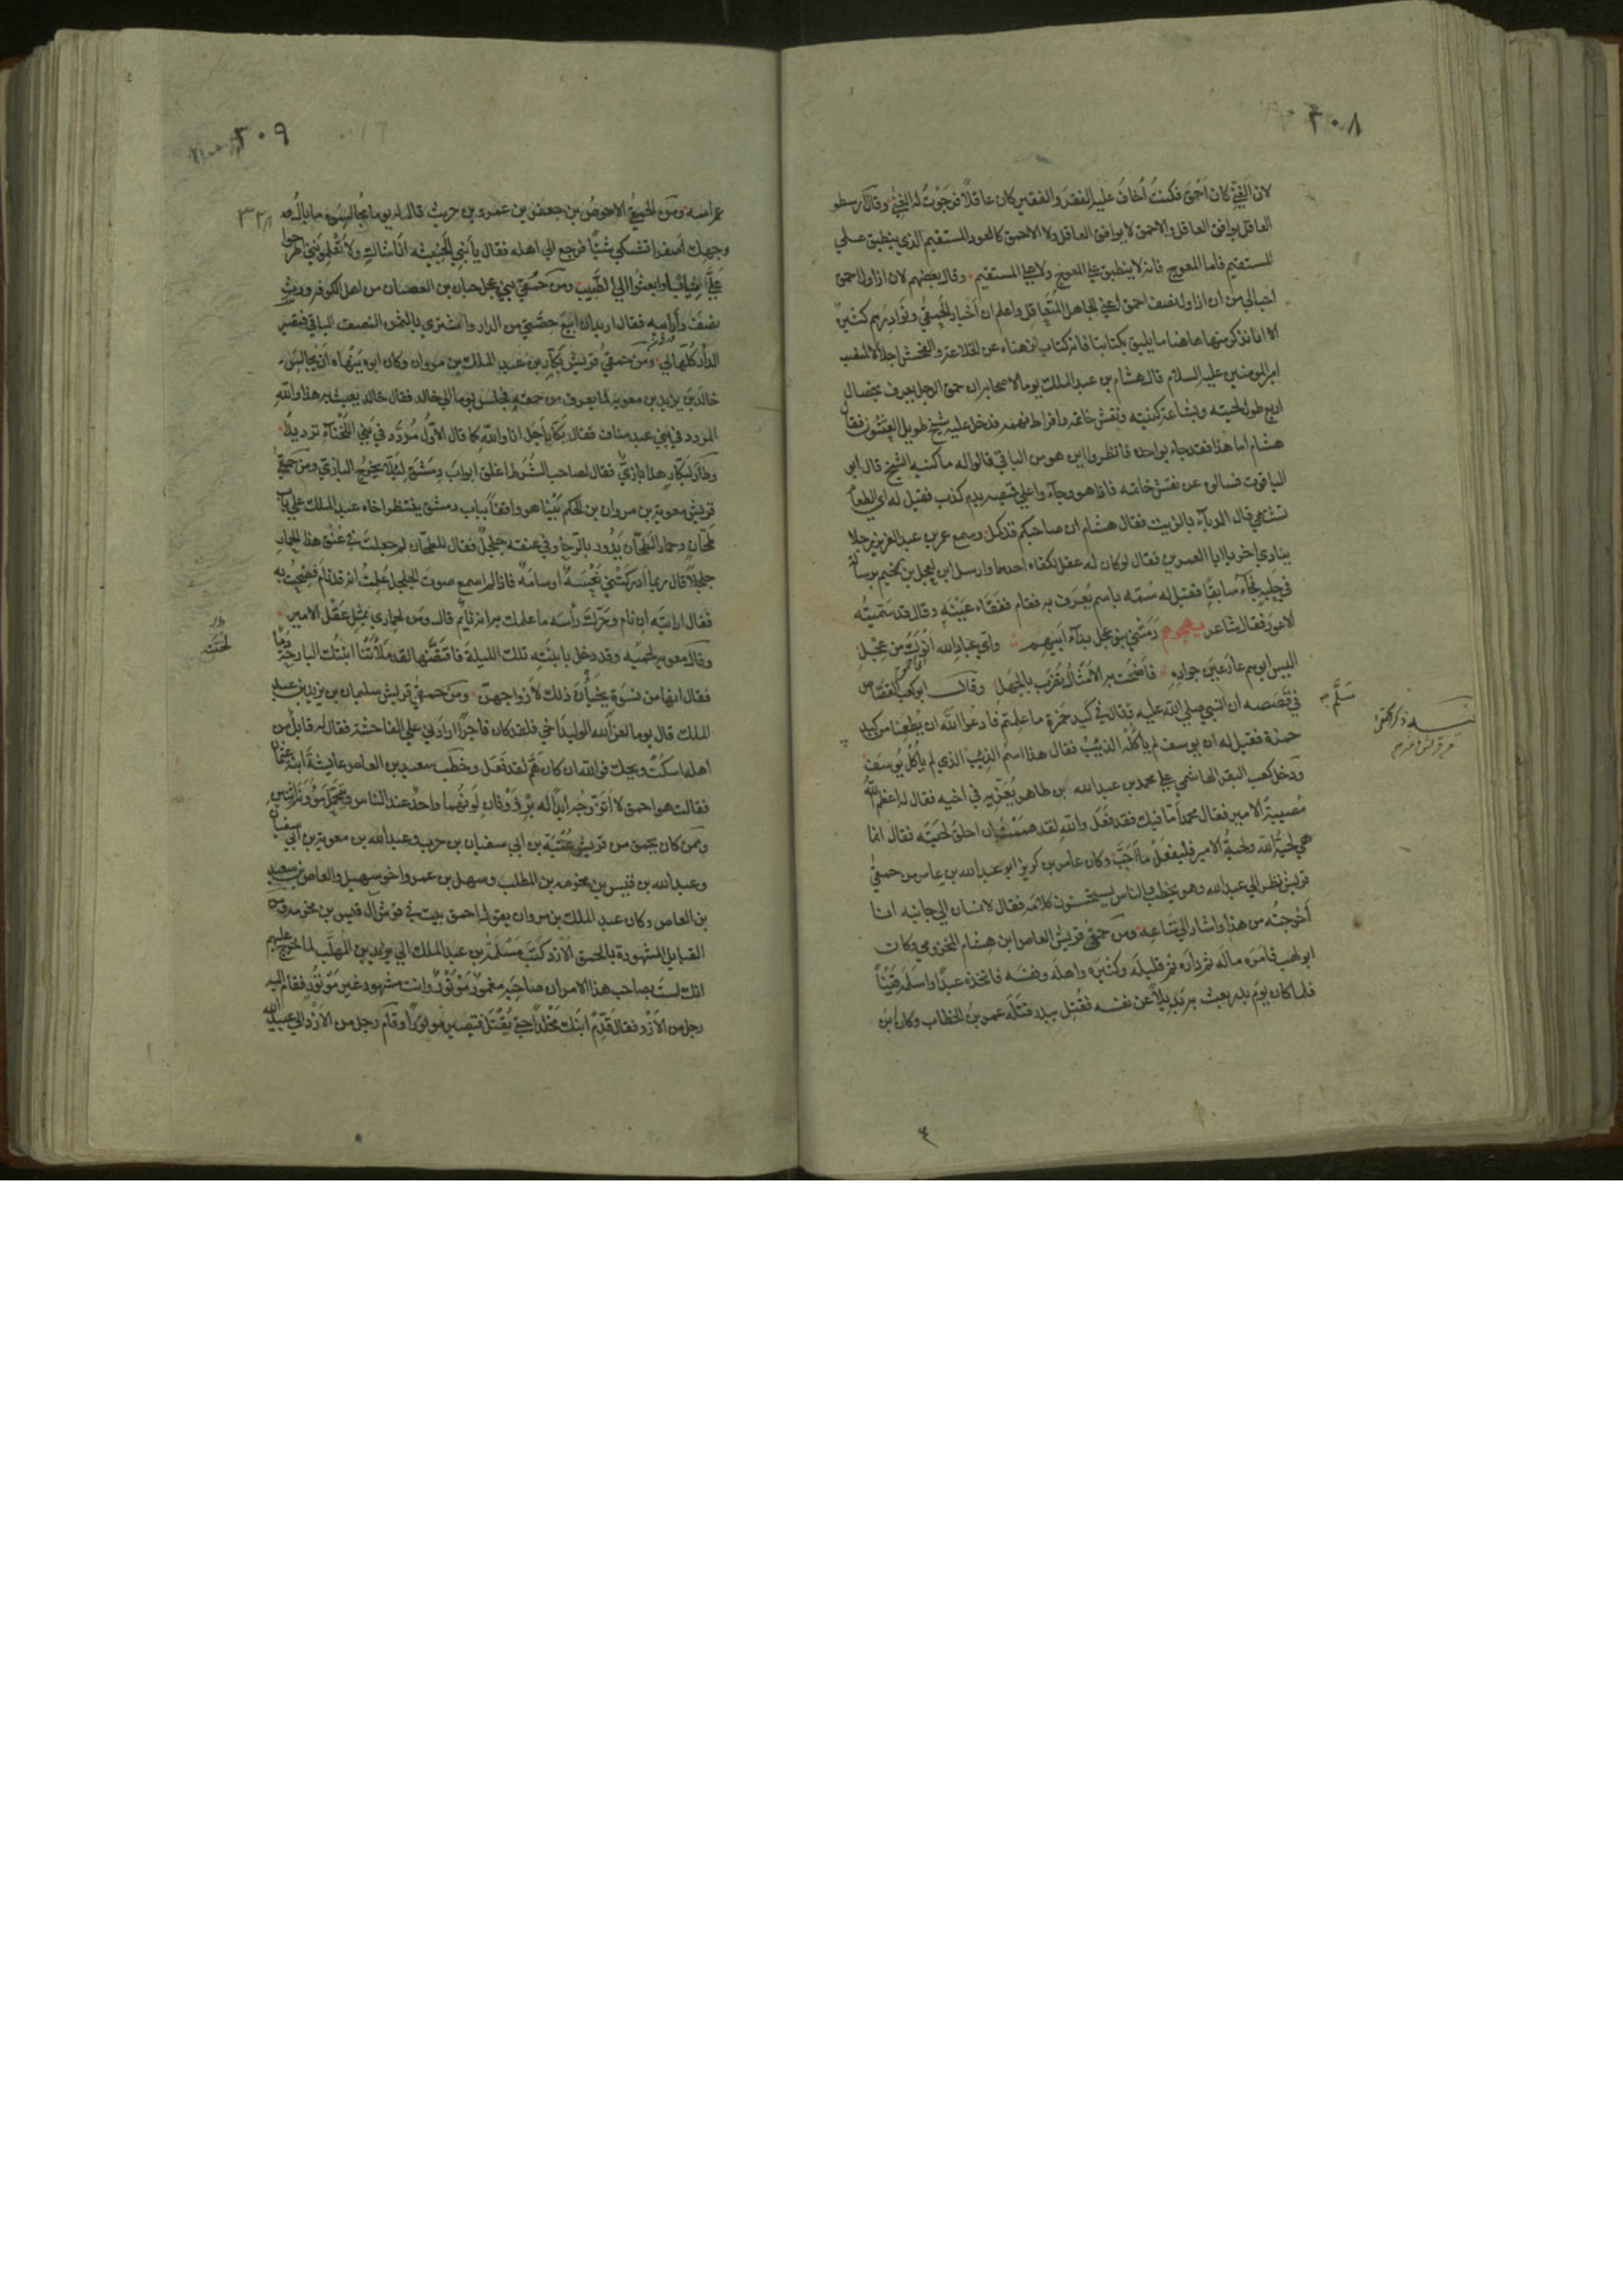 ٣٠٨
لان الغني كان احمق فكنت اخاف عليه الفقر والفقير كان عاقلا فرجوت له الغني وقال ارسطو
العاقل يوافق العاقل والاحمق لا يوافق العاقل ولا الاحمق كالعود المستقيم الذي ينطبق علي
المستقيم فاما المعوج فانه لا ينطبق علي المعوج ولا علي المستقيم وقال بعضهم لان ازاول احمق
احب الي من ان ازاول نصف احمق اعني الجاهل المتعاقل واعلم ان اخبار الحمقي ونوادرهم كثيرة
الا انا نذكر منها هاهنا ما يليق بكتابنا فانه كتاب نزهناه عن الخلاعة والفحش اجلالا لمنصب
امير المومنين عليه السلام قال هشام بن عبد الملك يوما لاصحابه ان حمق الرجل يعرف بخصال
اربع طول لحيته وبشاعة كنيته ونقش خاتمه وافراط نهمته فدخل عليه شيخ طويل العثنون فقال
هشام اما هذا فقد جاء بواحدة فانظروا اين هو من الباقي قالوا له ما كنية الشيخ قال ابو
الياقوت فسالوه عن نقش خاتمه فاذا هو وجاءوا علي قميصه بدم كذب فقيل له اي الطعام
تشتهي قال الدباء بالزيت فقال هشام ان صاحبكم قد كمل وسمع عمر بن عبد العزيز رجلا
ينادي اخر يا ابا العمرين فقال لو كان له عقل لكفاه احدهما وارسل ابن لعجل بن لجيم فرسا له
في حلبة فجاء سابقا فقيل له سمه باسم يعرف به فقام ففقاء عينه وقال قد سميته
الاعور فقال شاعر يهجوهم رمتني بنو عجل بداء ابيهم واي عباد الله انوك من عجل
اليس ابوهم عار عين جواده فاضحت به الامثال تضرب بالجهل وقال ابو كعب القصاص
في قصصه ان النبي صلي الله عليه قال في كبد حمزة ما علمتم فادعوا الله ان يطعمنا من كبد
حمزة فقيل له ان يوسف لم ياكله الذيب فقال هذا اسم الذيب الذي لم ياكل يوسف
ودخل كعب البقر الهاشمي علي محمد بن عبد الله بن طاهر يعزيه في اخيه فقال له اعظم الله
مصيبة الامير فقال محمد اما فيك فقد فعل والله لقد هممت ان احلق لحيته فقال انما
هي لحية الله ولحية الامير فليفعل ما احب وكان عامر بن كريز ابو عبد الله بن عامر من حمقي
قريش نظر الي عبد الله وهو يخطب والناس يستحسنون كلامه فقال لانسان الي جانبه انا
اخرجته من هذا واشار الي متاعه ومن حمقي قريش العاص ابن هشام المخزومي وكان
ابو لهب قامره ماله ثم داره ثم قليله وكثيره واهله ونفسه فاتخذه عبدا واسلمه قينا
فلما كان يوم بدر بعث به بديلا عن نفسه فقتل ببدر قتله عمر بن الخطاب وكان ابن
سلم
٣٠٩
٣٢٨
عم امه ومن الحمقي الاحوص بن جعفر بن عمرو بن حريث قال له يوما مجالسوه ما بال
وجهك اصفر اتشتكي شيئا فرجع الي اهله فقال يا بني الخبيثة انا شاك ولا تعلمونني اطرحوا
علي الثياب وابعثوا الي الطبيب ومن حمقي بني عجل حسان بن الغضبان من اهل الكوفة ورث
نصف دار ابيه فقال اريد ان ابيع حصتي من الدار واشتري بالثمن النصف الباقي فتصير
الدار كلها لي ومن حمقي قريش بكار بن عبد الملك بن مروان وكان ابوه ينهاه ان يجالس
خالد بن يزيد بن معوية لما يعرف من حمقه فجلس يوما الي خالد فقال خالد يعبث به هذا والله
المردد في بني عبد مناف فقال بكار اجل انا والله كما قال الاول مردد في بني اللخناء ترديدا
وطار لبكار هذا بازي فقال لصاحب الشرط اغلق ابواب دمشق لئلا يخرج البازي ومن حمقي
قريش معوية بن مروان بن الحكم بينا هو واقفا بباب دمشق ينتظر اخاه عبد الملك علي باب
طحان وحمار الطحان يدور بالرحا وفي عنقه جلجل فقال للطحان لم جعلت في عنق هذا الحمار
جلجلا قال ربما ادركتني نعسة او سامة فاذا لم اسمع صوت الجلجل علمت انه قد نام فصحت به
فقال ارايته ان نام وحرك راسه ما علمك به انه نايم قال ومن لحماري بمثل عقل الامير
وقال معوية لحميه وقد دخل بابنته تلك الليلة فافتضها لقد ملأتنا ابنتك البارحة دما
فقال انها من نسوة يخبان ذلك لازواجهن ومن حمقي قريش سليمان بن يزيد بن عبد
الملك قال يوما لعن الله الوليد اخي فلقد كان فاجرا ارادني علي الفاحشة فقال له قايل من
اهله اسكت ويحك فوالله ان كان هم لقد فعل وخطب سعيد بن العاص عايشة ابنة عثمان
فقالت هو احمق لا اتزوجه ابدا له برذونان لونهما واحد عند الناس ويتحمل مؤونة اثنين
وممن كان يحمق من قريش عتبة بن ابي سفيان بن حرب وعبد الله بن معوية بن ابي سفيان
وعبد الله بن قيس بن مخرمة بن المطلب وسهل بن عمرو اخو سهيل والعاص بن سعيد
بن العاص وكان عبد الملك بن مروان يقول احمق بيت في قريش ال قيس بن مخرمة ومن
القبايل المشهورة بالحمق الازد كتب مسلمة بن عبد الملك الي يزيد بن المهلب لما خرج عليهم
انك لست بصاحب هذا الامر ان صاحبه مغمور موتور وانت مشهور غير موتور فقام اليه
رجل من الازد فقال قدم ابنك مخلدا حتي يقتل فتصير موتورا وقام رجل من الازد الي عبيد الله